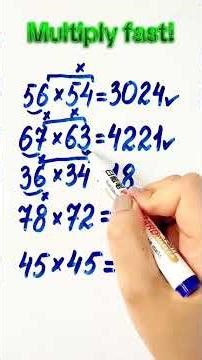 Multiply fast!
56×54=3024✓
67×63=4221✓
36×34 18
78×72=
45×45=